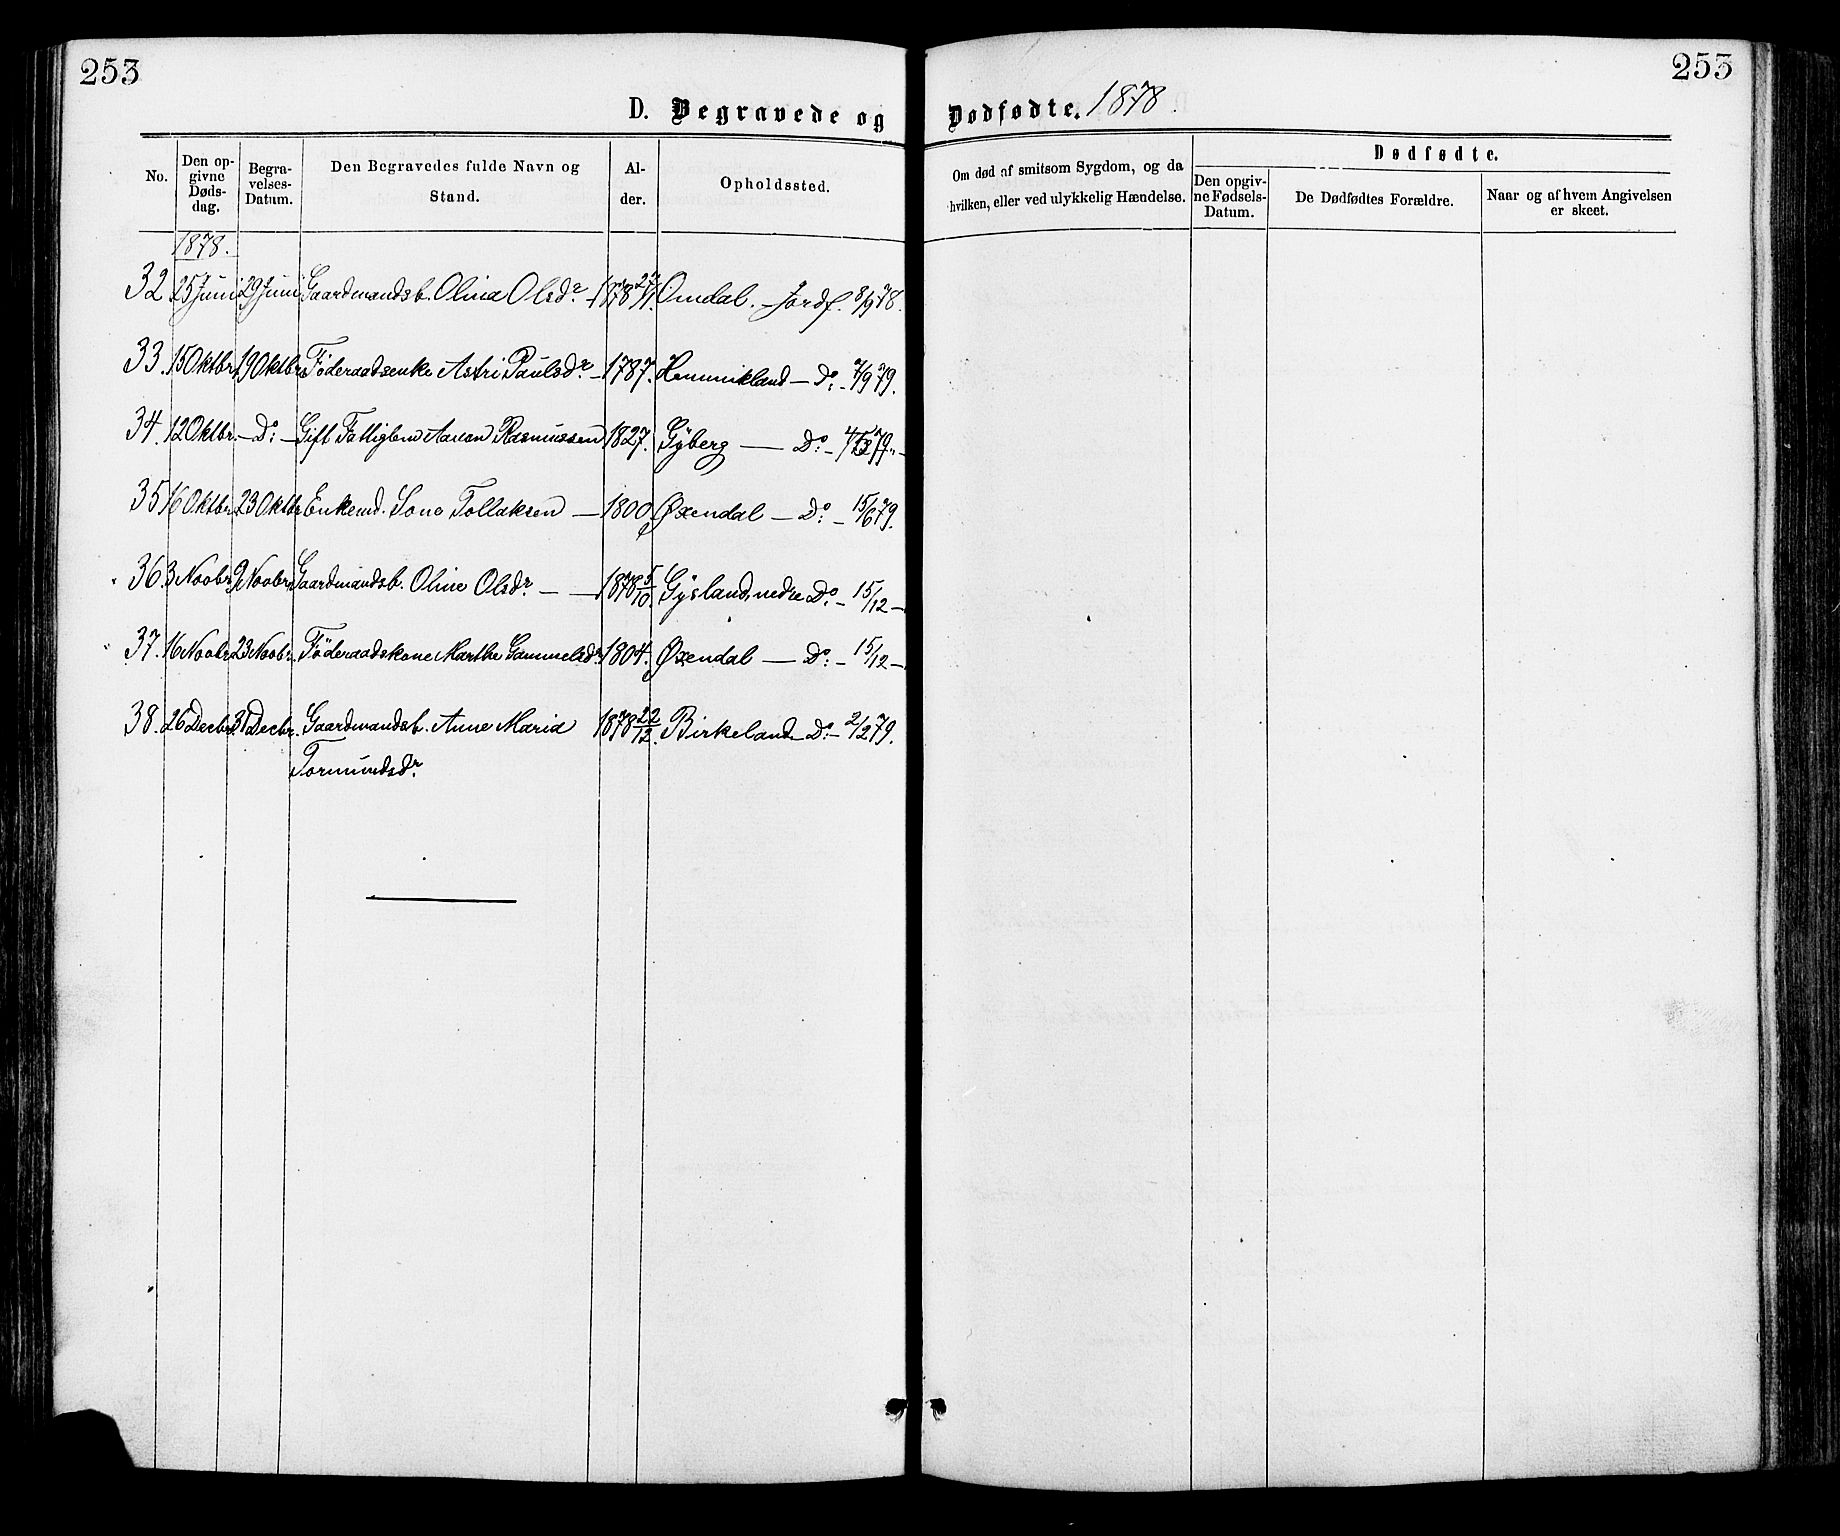 253
253
D. Begravede og Dødfødte. 1878.
No.
Den opgivne Dødsdag.
Begravelses-Datum.
Den Begravedes fulde Navn og Stand.
Alder.
Opholdssted.
Om død af smitsom Sygdom, og da hvilken, eller ved ulykkelig Hændelse.
Dødfødte.
Den opgivne Fødsels-Datum.
De Dødfødtes Forældre.
Naar og af hvem Angivelsen er skeet.
1878.
32 25 Juni 29 Juni Gaardmandsb. Olina Olsdr. 1878 27/1. Omdal. - Jordf. 8/9 78.
33. 15 Oktbr. 19 Oktbr. Føderaadsenke Astri Paulsdr. - 1787. Hemmikland - Do: - 7/9 79.
34. 12 Oktbr. - Do: - Gift Fattiglem Aanen Rasmussen 1827. Gyberg - Do: -
35 16 Oktbr. 23 Oktbr. Enkemd. Tollaksen - 1800. Øxendal - Do: - 15/6 79.
36. 3 Novbr. 9 Novbr. Gaardmandsb. Oline Olsdr. - 1878 5/10. Gysland, nedre Do: - 15/12 -
37. 16 Novbr. 23 Novbr. Føderaadskone Marthe Gammelsdr. 1804. Øxendal - Do: - 15/12 -
38. 26 Decbr. 31 Decbr. Gaardmandsb. Anne Maria 1878 22/12. Birkeland - Do: - 2/2 79.
Tormundsdr.